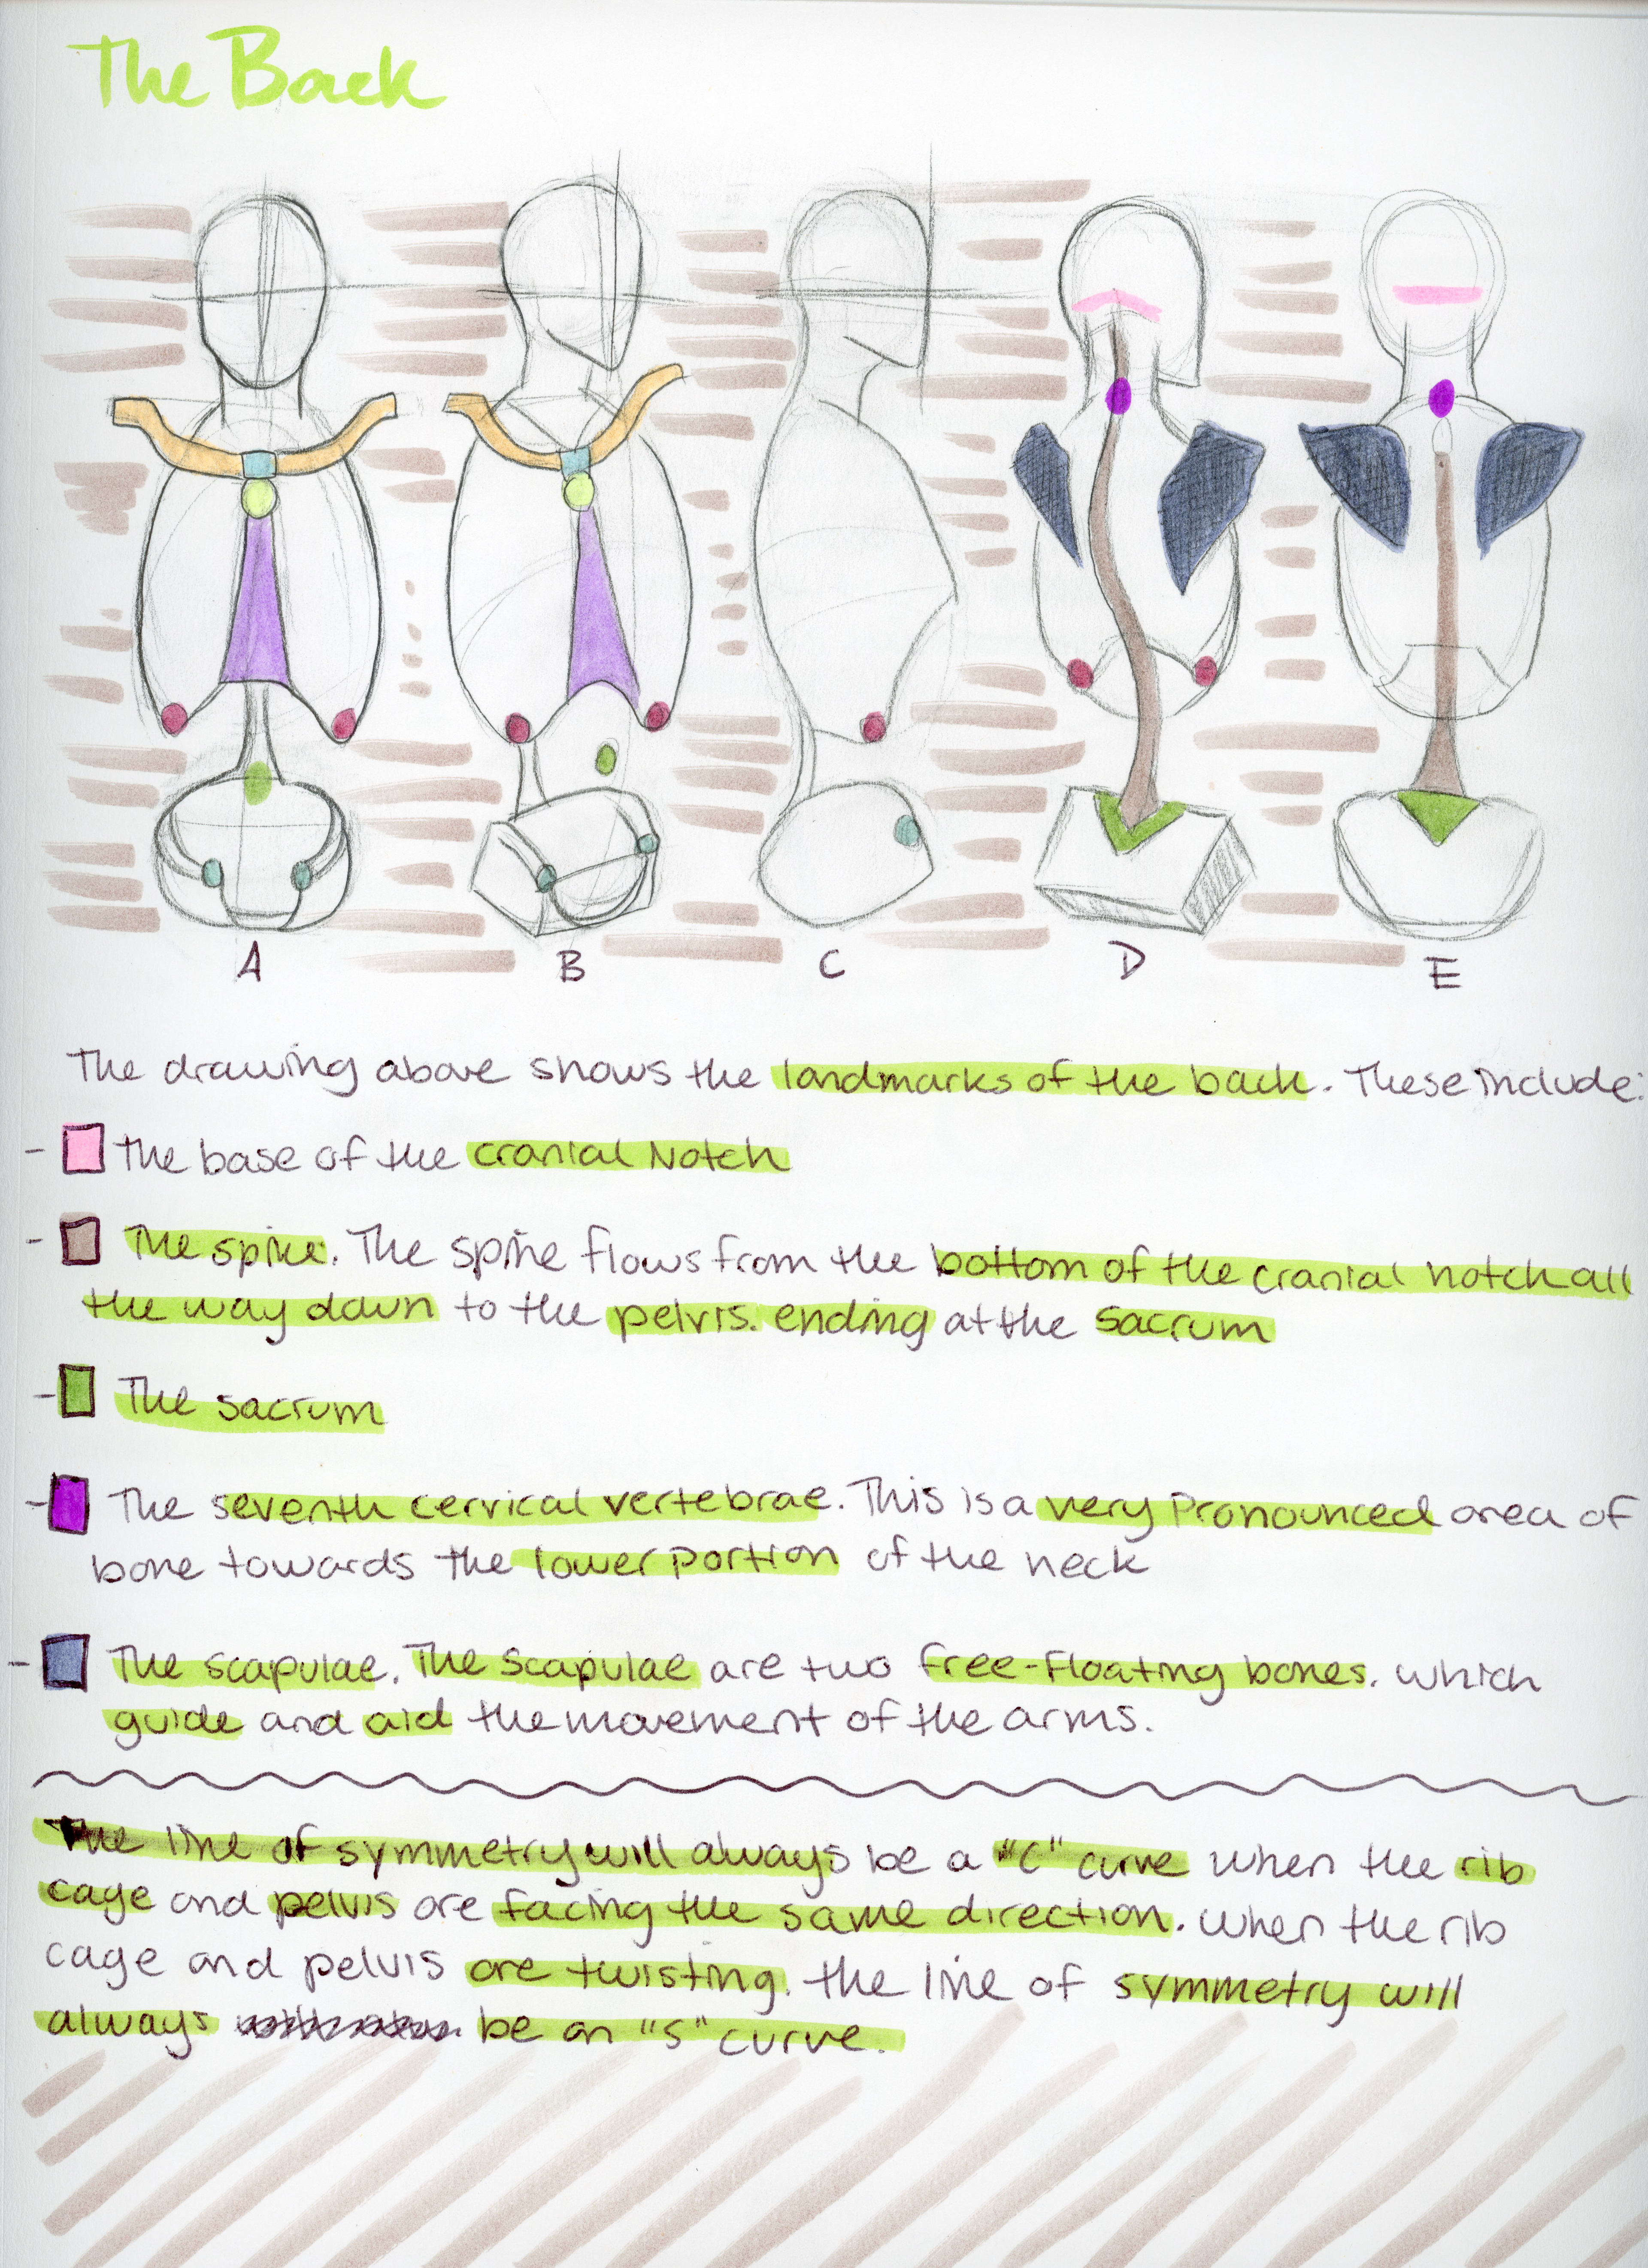 The Back
A B C D E
The drawing above shows the landmarks of the back. These include:
- The base of the cranial Notch
- The spine. The spine flows from the bottom of the cranial notch all
the way down to the pelvis. ending at the sacrum
- The sacrum
- The seventh cervical vertebrae. This is a very pronounced area of
bone towards the lower portion of the neck
- The scapulae. The scapulae are two free-floating bones. which
guide and aid the movement of the arms.
The line of symmetry will always be a "C" curve when the rib
cage and pelvis are facing the same direction. When the rib
cage and pelvis are twisting. the line of symmetry will
always be an "S" curve.